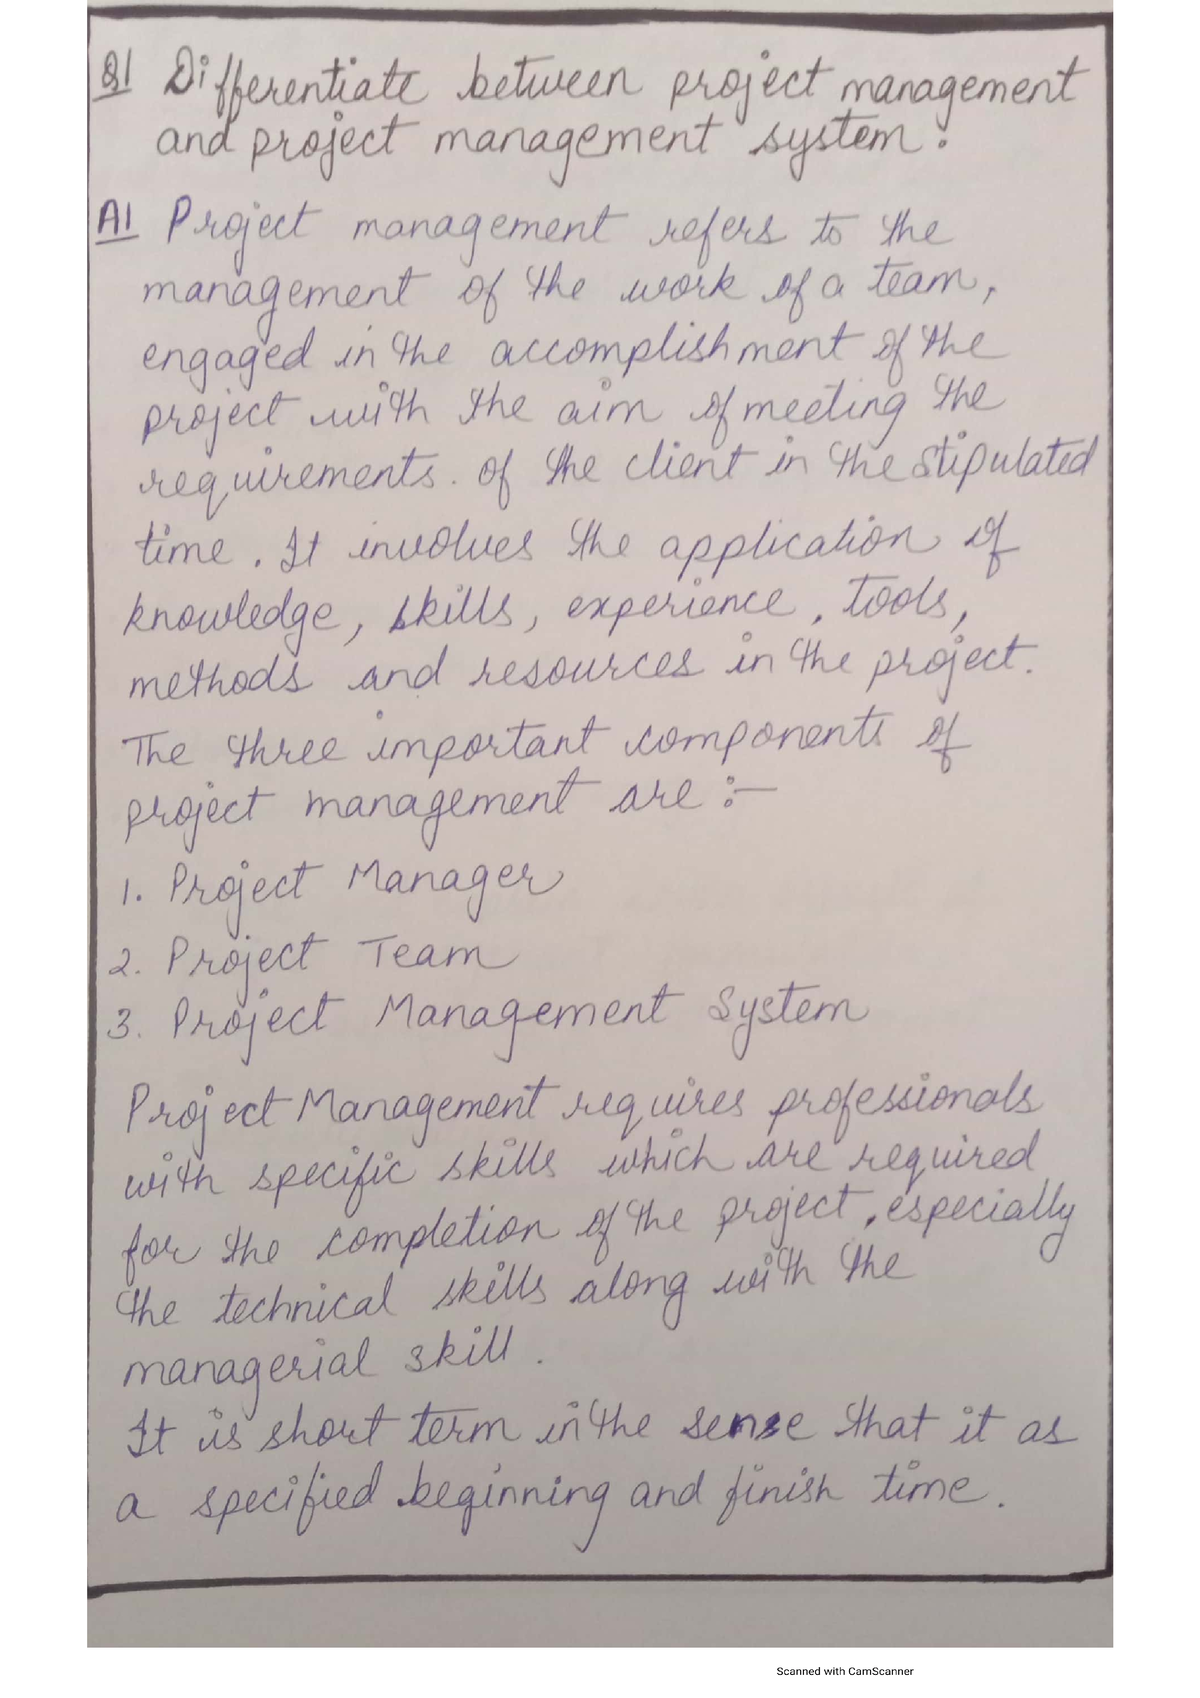 Q1 Differentiate between project management
and project management system.
A1 Project management refers to the
management of the work of a team,
engaged in the accomplishment of the
project with the aim of meeting the
requirements. of the client in the stipulated
time. It involves the application of
knowledge, skills, experience, tools,
methods and resources in the project.
The three important components of
project management are :-
1. Project Manager
2. Project Team
3. Project Management System
Project Management requires professionals
with specific skills which are required
for the completion of the project, especially
the technical skills along with the
managerial skill.
It is short term in the sense that it as
a specified beginning and finish time.
Scanned with CamScanner